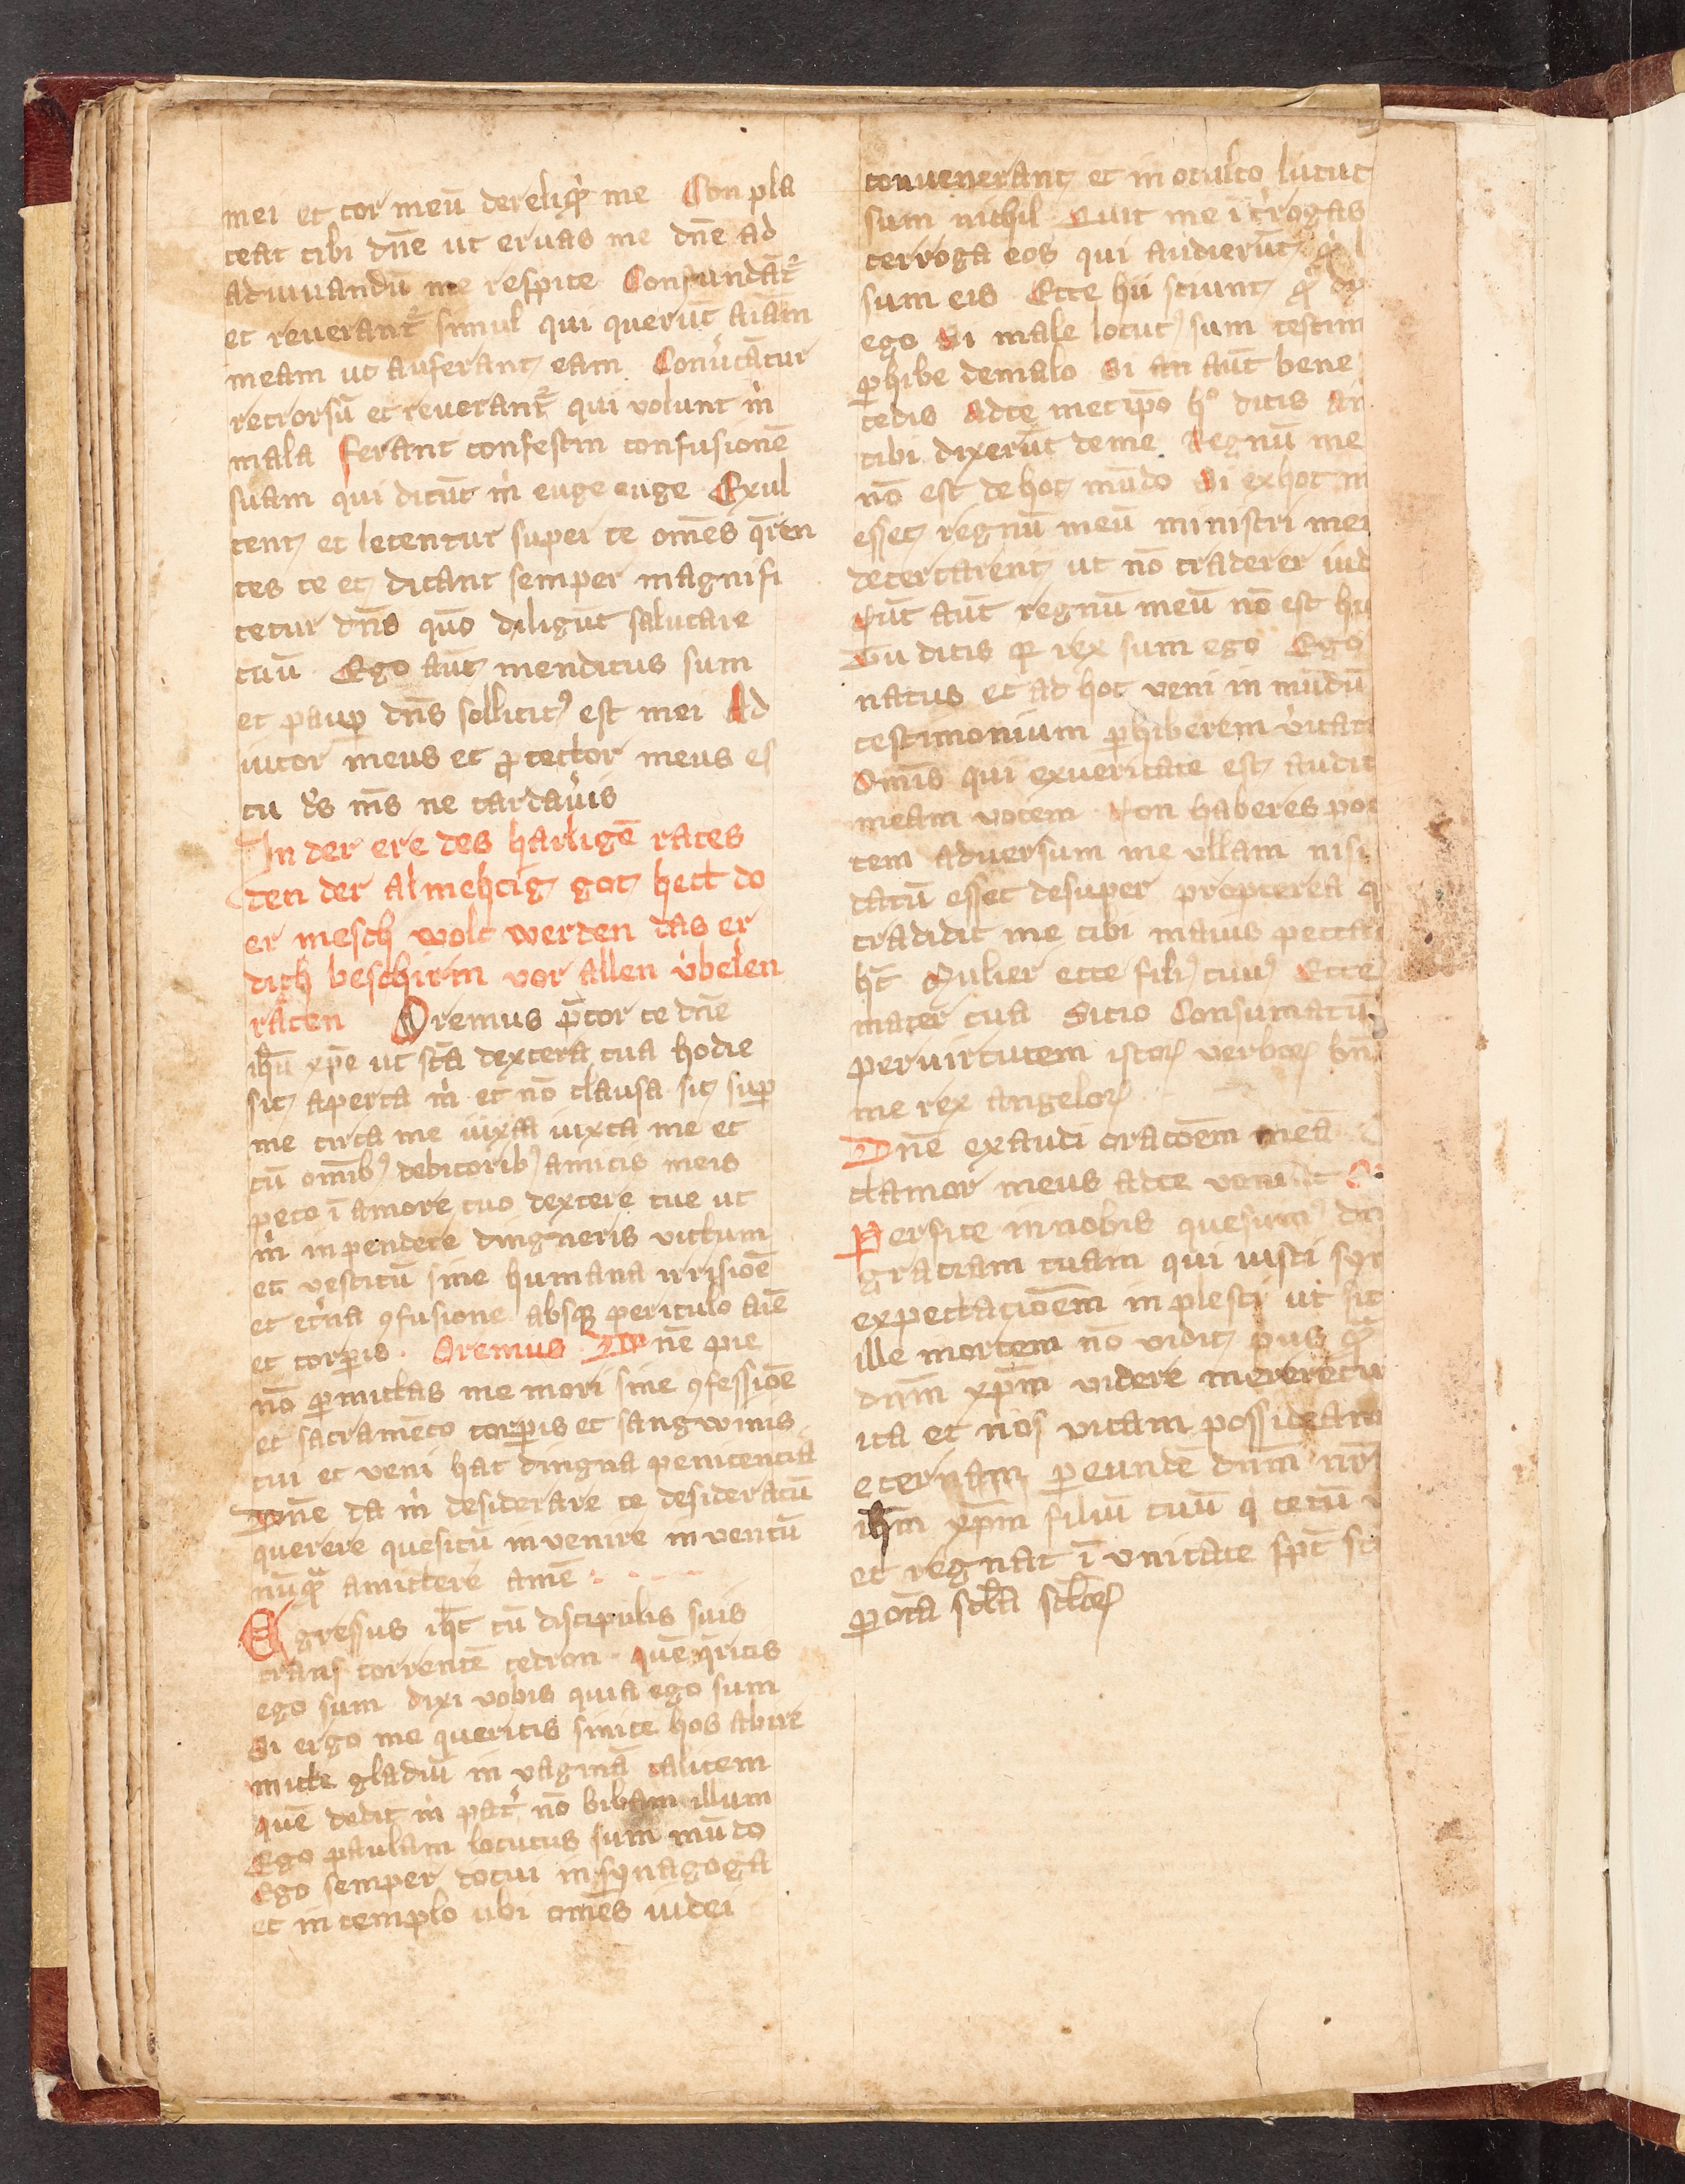 mei et cor meū dereliqͥt me Con pla
ceat tibi dn̄e ut eruas me dn̄e ad
adiuuandū me respice Confundāt᷑
et reuerant᷑ simul qui querūt aīam
meam ut auferant eam Conuͤtātur
retrorsū et reuerant᷑ qui volunt mͥ
mala ferant confestin confusionē
suam qui dicūt mͥ euge euge Exul
tent et letentur super te om̄es q̄ren
tes te et dicant semper magnifi
cetur dn̄s quō diligūt salutare
tuū Ego aūt mendicus sum
et paup̄ dn̄s sollicitꝰ est mei Ad
iutor meus et ꝓtector meus es
tu dͤs m̄s ne tardauͤis
In der ere des hailigē rates
den der almehtig got hett do
er mesch wolt werden das er
dich beschirm vor allen v̇belen
räten Oremus p̄cor te dn̄e
ih̄u xp̄e ut sc̄a dextera tua hodie
sit aperta mͥ et nō clausa sit sup̄
me circa me iuxta iuxta me et
cū om̄ibꝰ debitoribꝰ amicis meis
peto ī amore tuo dextere tue ut
mͥ inpendere dingneris victum
et vestitū sine humana irrisiōe
et et͛na ꝯfusione absqꝫ periculo aīe
et corꝑis . Oremus Dn̄e pie
nō ꝑmictas me mori sine ꝯfessiōe
et sacramēto corꝑis et sangwinis
tui et veni hac dingna penitencia
Dn̄e da mͥ desiderare te desideratū
querere quesitū invenire inventū
nūqᷓ amictere amē
Egressus ih̄c cū discipulis suis
trans torrentē cedron quē q̄ritis
ego sum dixi vobis quia ego sum
Si ergo me queritis sinite hos abire
micte gladiū in vaginā calicem
quē dedit mͥ pat͛ nō bibam illum
Ego paulam locutus sum mūdo
Ego semper docui in synagoga
et in templo ubi om̄es iudei
conuenerant et in oculto lucut
sum nichil Quit me īt͛rogas
terroga eos qui audierūt
sum eis Ecce hii sciunt
ego Si male locutꝰ sum testim
ꝑhibe demalo Si an aūt bene
cedis Adte metip̄o hͦ dicis an
tibi dixerūt deme Regnū me
nō est dehoc mūdo Si exhoc m
esset regnū meū ministri mei
decertarent ut nō traderer iud
Nūt aūt regnū meū nō est hi
Tu dicis qꝛ rex sum ego Ego
natus et ad hoc veni in mūdū
testimonium ꝑhiberem vͤitati
Om̄is qui exueritate est audit
meam vocem Non haberes pot
tem aduersum me vllam nisi
datū esset desuper propterea q
tradidit me tibi maius peccat
h̄t Mulier ecce filiꝰ tuuꝰ Ecce
mater tua Sitio Consumatū
per virtutem istoꝝ verboꝝ bn̄
me rex angeloꝝ
Dn̄e exaudi oracōem meā
clamor meus adte veniāt
Perfice innobis quesumꝰ dn
graciam tuam qui iusti sym
expectaciōem inplesti ut sic
ille mortem nō vidit
dn̄m xp̄m videre mereretu
ita et nos vitam possideam
eternam ꝑ eundē dn̄m nr̄
ih̄m xp̄m filiū tuū qͥ tecū
et regnat ī vnitate
ꝑ oīa scl̄a scl̄oꝝ